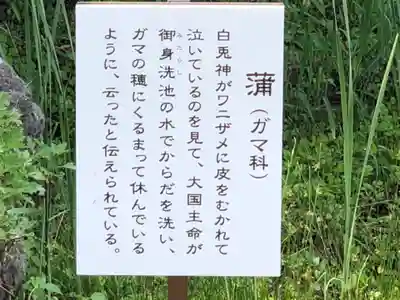 蒲(ガマ科)
白兎神がワニザメに皮をむかれて
泣いているのを見て、大国主命が
御身洗池の水でからだを洗い、
みたらし
ガマの穂にくるまって休んでいる
ように、云ったと伝えられている。